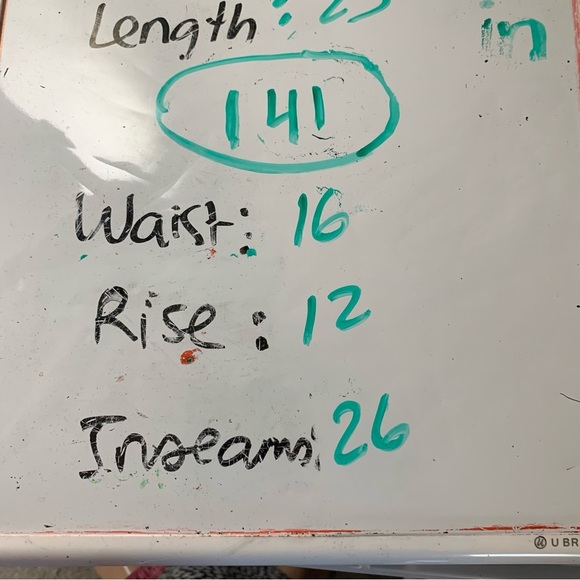 Length: 25 in
141
Waist: 16
Rise: 12
Inseams: 26
U BR